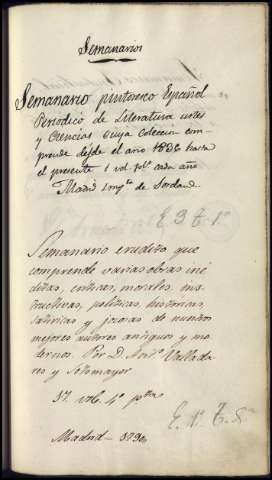 Semanarios
Semanario pintoresco Español
Periodico de Literatura artes
y Ciencias cuya coleccion com-
prende desde el año 1836 hasta
el presente 1 vol. fol.º cada año
Madrid Impta de Jordan.
E 3 T. 1º
Semanario erudito que
comprende varias obras iné
ditas, criticas, morales ins
tructivas, politicas, historicas,
satiricas y jocosas de nuestros
mejores autores antiguos y mo
dernos. Por D. Antº Vallada
res y Sotomayor
vol. 4º ptª
E. 1º T. 8º
Madrid